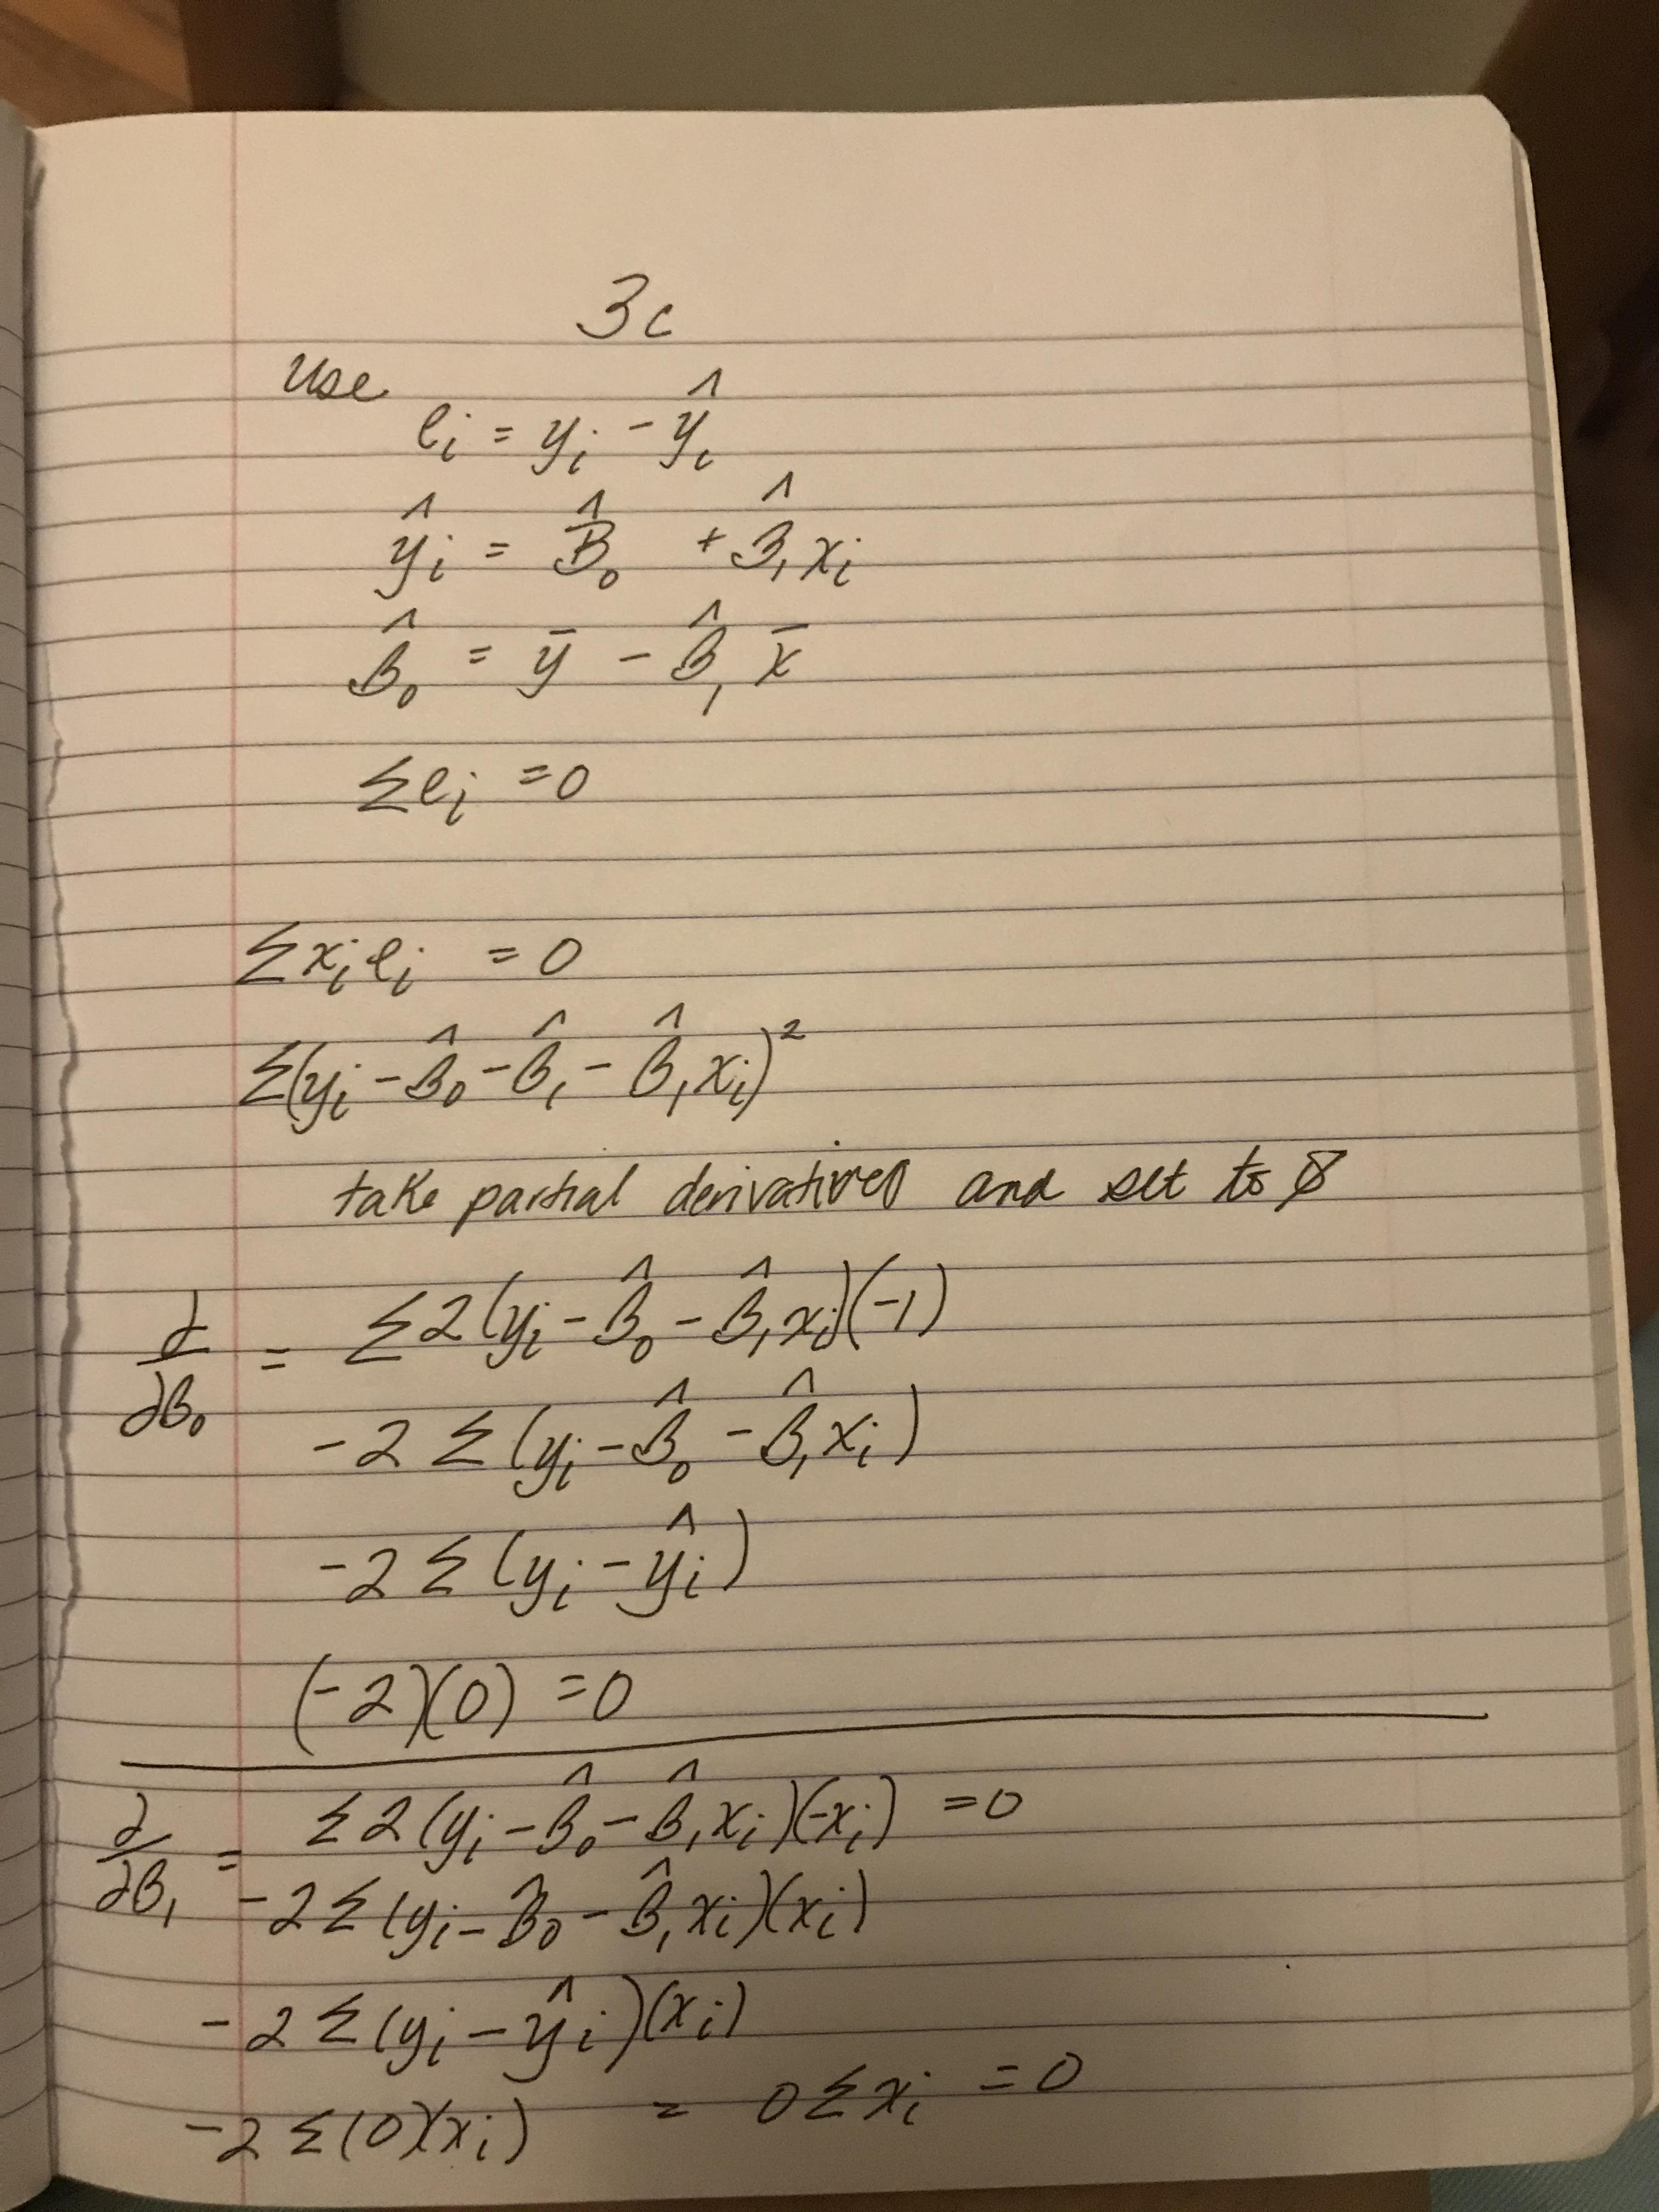 3c
Use
eᵢ = yᵢ - ŷᵢ
ŷᵢ = B̂₀ + B̂₁xᵢ
B̂₀ = ȳ - B̂₁ x̄
Σeᵢ = 0
Σxᵢeᵢ = 0
Σ(yᵢ - B̂₀ - B̂₁ - B̂₁xᵢ)²
take partial derivatives and set to 0
∂/∂B₀ = Σ2(yᵢ - B̂₀ - B̂₁xᵢ)(-1)
-2Σ(yᵢ - B̂₀ - B̂₁xᵢ)
-2Σ(yᵢ - ŷᵢ)
(-2)(0) = 0
∂/∂B₁ = Σ2(yᵢ - B̂₀ - B̂₁xᵢ)(-xᵢ) = 0
-2Σ(yᵢ - B̂₀ - B̂₁xᵢ)(xᵢ)
-2Σ(yᵢ - ŷᵢ)(xᵢ)
-2Σ(0)(xᵢ) = 0Σxᵢ = 0